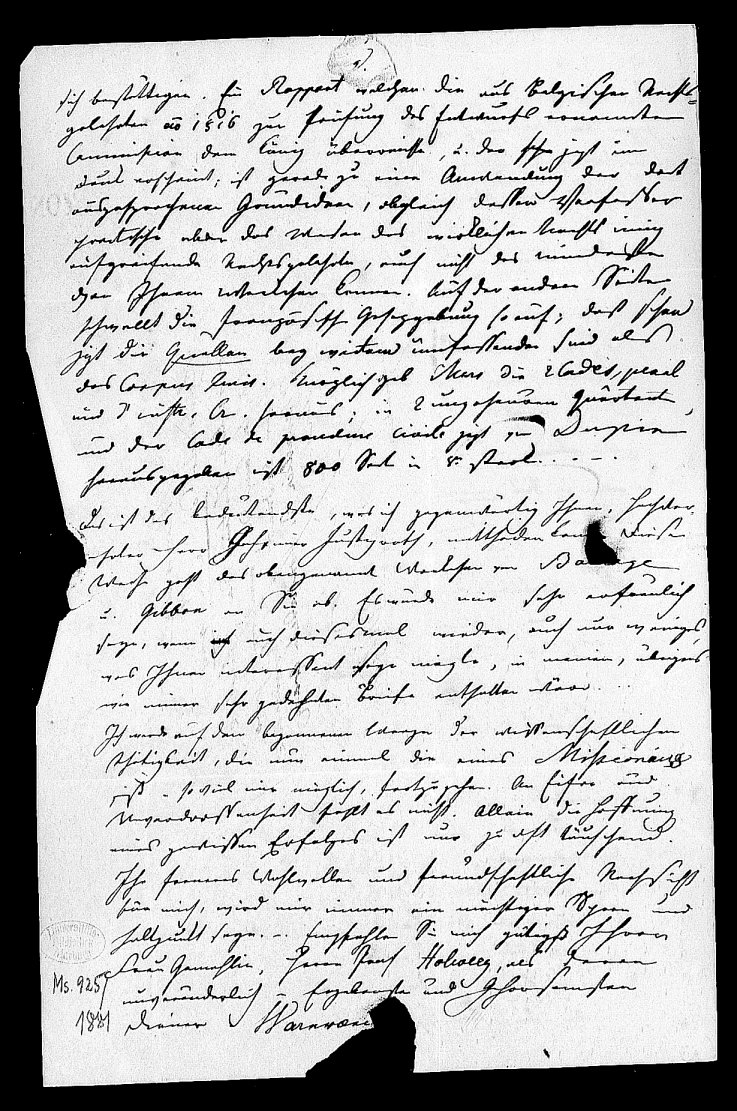 V.
sich bestättigen. Ein Rapport welchen die aus Belgischen Rechts-
gelehrten ao 1816 zur Prüfung des Entwurfs ernannte
Commission dem König überreichte, u. der schon jezt im
Druk erscheint, ist gerade zu eine Anwendung der dort
ausgesprochenen Grundideen, obgleich dessen Verfasser
practische aber das Wesen des wirklichen Rechts innig
auffassende Rechtsgelehrte, auch nicht das mindeste
von Ihren Werken kennen. Auf der andern Seite
schwellt die französische Gesezgebung so auf, daß schon
jezt die Quellen bey weitem umfassender sind als
das Corpus Juris. Kürzlich gab Mars die 2 Codes, penal
und d'instr. Cr. heraus, in 2 ungeheuren Quartant
und der Code de procedure civile jezt von Dupin
herausgegeben ist 800 Seit in 8. stark. . - -
Das ist das bedeutendste, was ich gegenwärtig Ihnen, hochver-
ehrter Herr Geheimer Justizrath, mittheilen kann. Diese
Woche geht das obengenannte Werkchen von
u. Gibbon an Sie ab. Es würde mir sehr erfreulich
seyn, wenn auch diesesmal wieder, auch nur weniges,
was Ihnen interessant seyn mögte, in meinem, übrigens
wie immer sehr gedehnten Briefe enthalten wäre. . .
Ich werde auf dem begonnenen Wege der wissenschaftlichen
Thätigkeit, die nun einmal die eines Missionärs
ist - so viel mir möglich, fortzugehen. An Eifer und
Unverdrossenheit fehlt es nicht. Allein die Hoffnung
eines gewissen Erfolges ist nur zu oft täuschend.
Ihr ferneres Wohlwollen und freundschaftliche Nachsicht
für mich, wird mir immer ein mächtiger Sporn und
Haltpunkt seyn. - Empfehlen Sie mich gütigst Ihrer
Frau Gemahlin, Herrn Prof Hollweg, als deren
unveränderlich - Ergebenste und Gehorsamsten
Diener Warnkoenig
Ms. 925/
1881